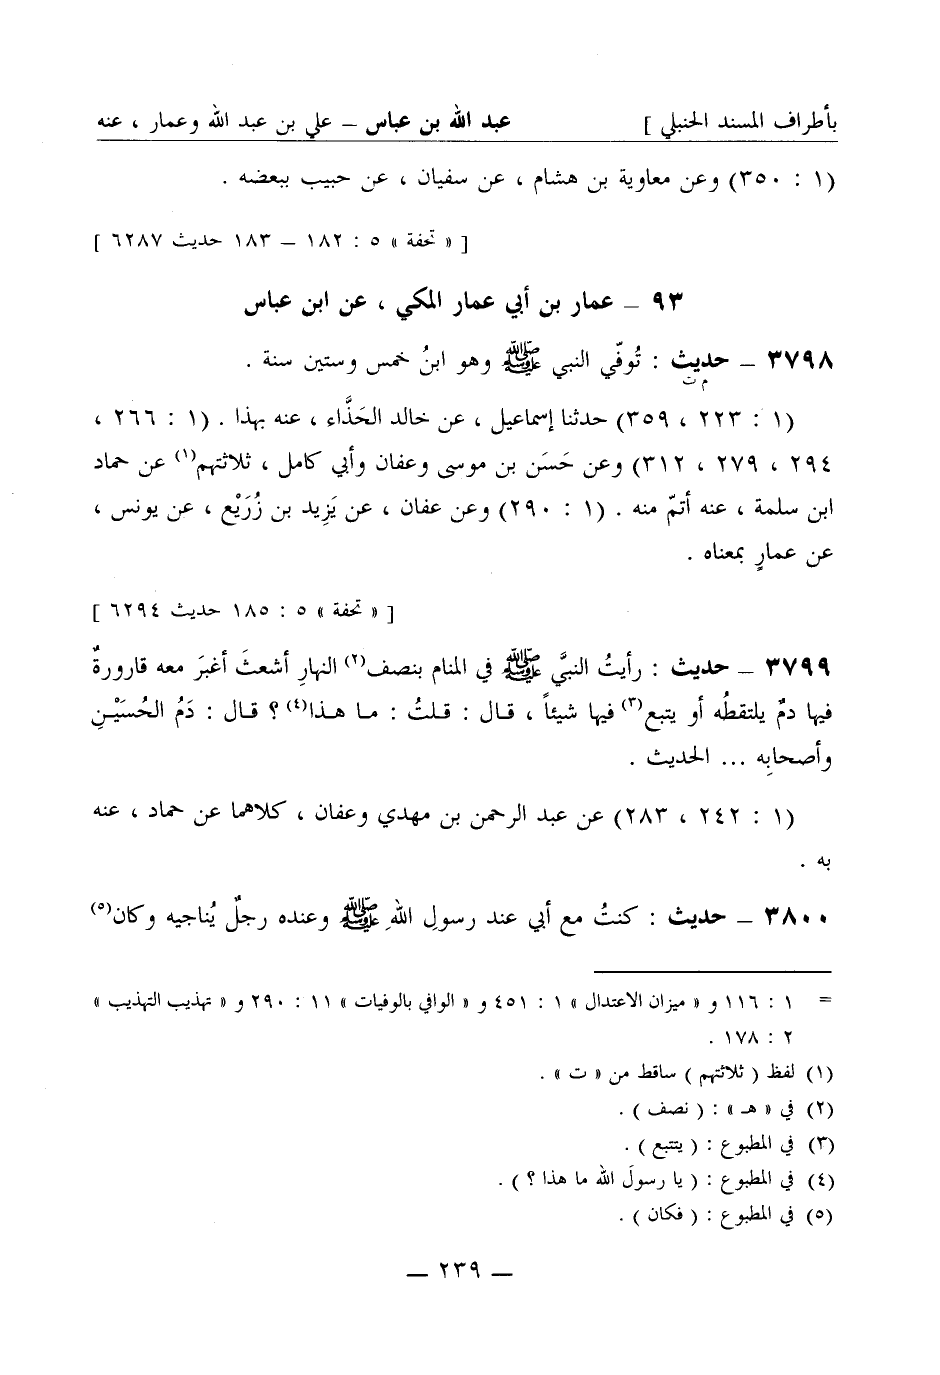 بأطراف المسند الحنبلي ] عبد الله بن عباس – علي بن عبد الله وعمار ، عنه
(١ : ٣٥٠) وعن معاوية بن هشام ، عن سفيان ، عن حبيب ببعضه .
[ « تحفة » ٥ : ١٨٢ – ١٨٣ حديث ٦٢٨٧ ]
٩٣ – عمار بن أبي عمار المكي ، عن ابن عباس
٣٧٩٨ – حديث : تُوفّي النبي ﷺ وهو ابنُ خمس وستين سنة .
م ت
(١ : ٢٢٣ ، ٣٥٩) حدثنا إسماعيل ، عن خالد الحَذَّاء ، عنه بهذا . (١ : ٢٦٦ ،
٢٩٤ ، ٢٧٩ ، ٣١٢) وعن حَسَن بن موسى وعفان وأبي كامل ، ثلاثتهم(١) عن حماد
ابن سلمة ، عنه أتمّ منه . (١ : ٢٩٠) وعن عفان ، عن يَزِيد بن زُرَيْع ، عن يونس ،
عن عمارٍ بمعناه .
[ « تحفة » ٥ : ١٨٥ حديث ٦٢٩٤ ]
٣٧٩٩ – حديث : رأيتُ النبيَّ ﷺ في المنام بنصف(٢) النهارِ أشعثَ أغبرَ معه قارورةٌ
فيها دمٌ يلتقطُه أو يتبع(٣) فيها شيئاً ، قال : قلتُ : ما هذا(٤) ؟ قال : دَمُ الحُسَيْنِ
وأصحابِه ... الحديث .
(١ : ٢٤٢ ، ٢٨٣) عن عبد الرحمن بن مهدي وعفان ، كلاهما عن حماد ، عنه
به .
٣٨٠٠ – حديث : كنتُ مع أبي عند رسولِ اللهِ ﷺ وعنده رجلٌ يُناجيه وكان(٥)
= ١ : ١١٦ و « ميزان الاعتدال » ١ : ٤٥١ و « الوافي بالوفيات » ١١ : ٢٩٠ و « تهذيب التهذيب »
٢ : ١٧٨ .
(١) لفظ ( ثلاثتهم ) ساقط من « ت » .
(٢) في « هـ » : ( نصف ) .
(٣) في المطبوع : ( يتتبع ) .
(٤) في المطبوع : ( يا رسولَ الله ما هذا ؟ ) .
(٥) في المطبوع : ( فكان ) .
– ٢٣٩ –